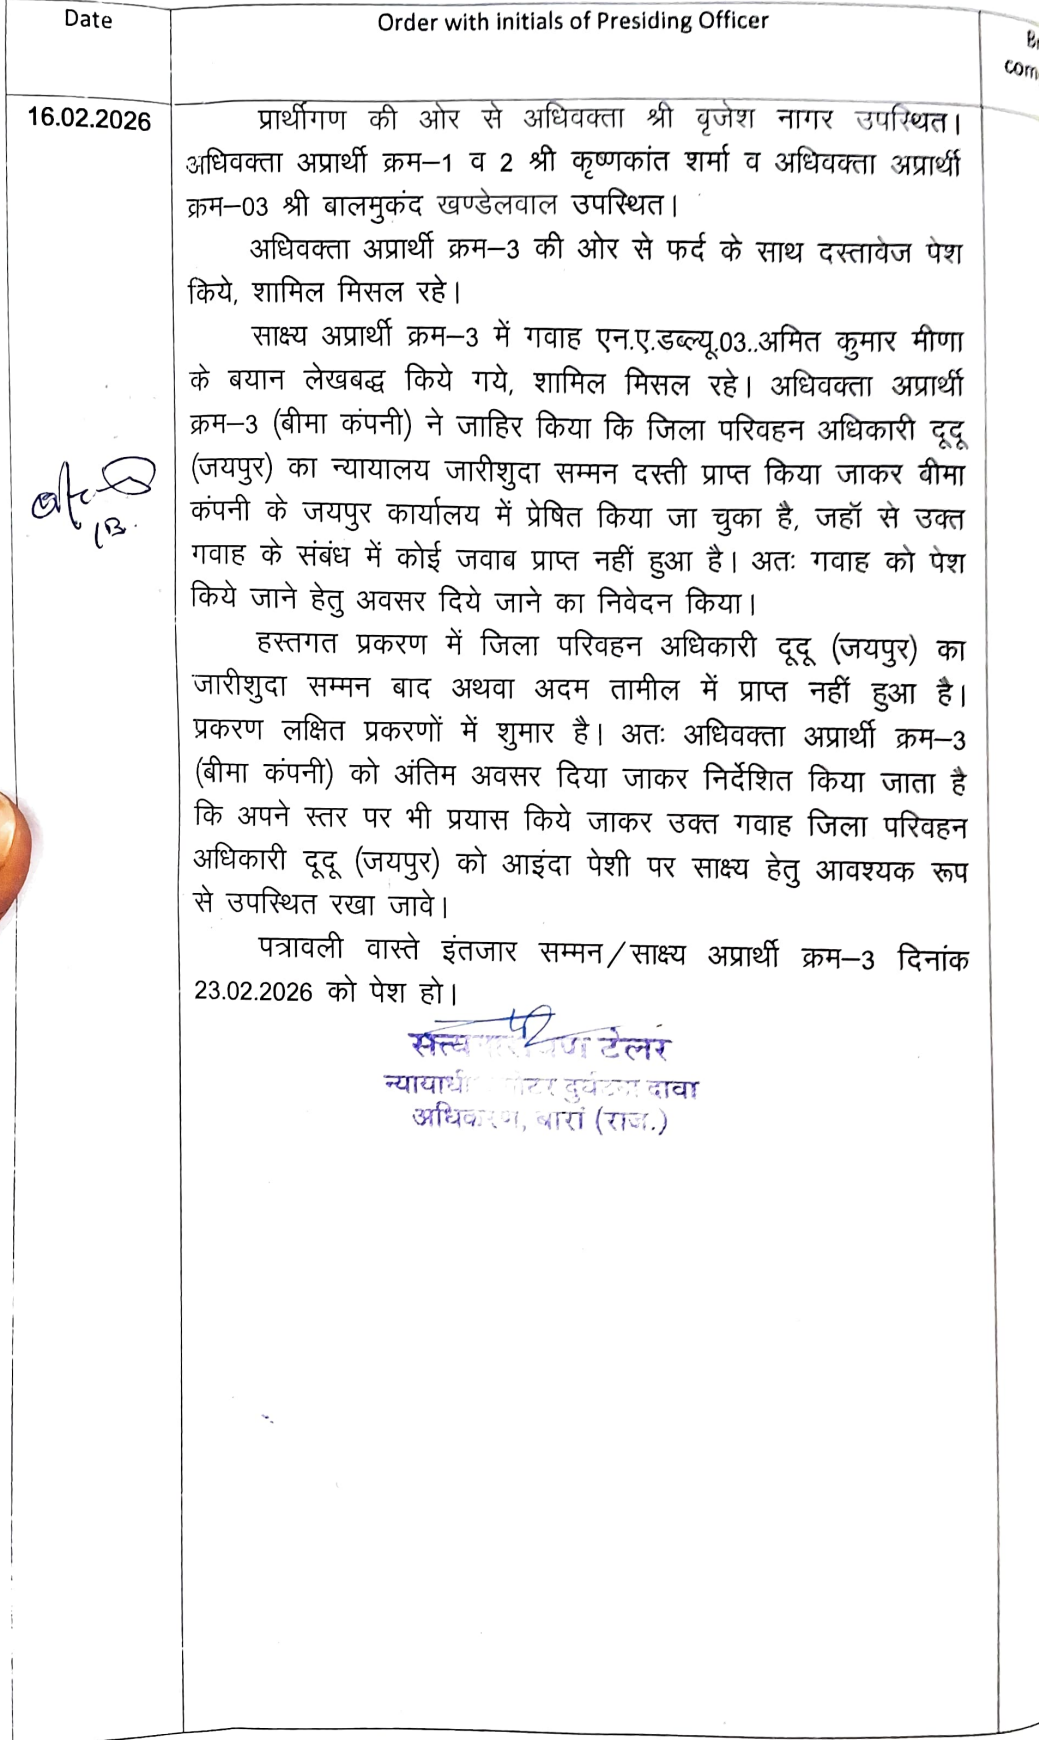 Date
Order with initials of Presiding Officer
16.02.2026
प्रार्थीगण की ओर से अधिवक्ता श्री वृजेश नागर उपस्थित।
अधिवक्ता अप्रार्थी क्रम–1 व 2 श्री कृष्णकांत शर्मा व अधिवक्ता अप्रार्थी
क्रम–03 श्री बालमुकंद खण्डेलवाल उपस्थित।
अधिवक्ता अप्रार्थी क्रम–3 की ओर से फर्द के साथ दस्तावेज पेश
किये, शामिल मिसल रहे।
साक्ष्य अप्रार्थी क्रम–3 में गवाह एन.ए.डब्ल्यू.03..अमित कुमार मीणा
के बयान लेखबद्ध किये गये, शामिल मिसल रहे। अधिवक्ता अप्रार्थी
क्रम–3 (बीमा कंपनी) ने जाहिर किया कि जिला परिवहन अधिकारी दूदू
(जयपुर) का न्यायालय जारीशुदा सम्मन दस्ती प्राप्त किया जाकर वीमा
कंपनी के जयपुर कार्यालय में प्रेषित किया जा चुका है, जहॉ से उक्त
गवाह के संबंध में कोई जवाब प्राप्त नहीं हुआ है। अतः गवाह को पेश
किये जाने हेतु अवसर दिये जाने का निवेदन किया।
हस्तगत प्रकरण में जिला परिवहन अधिकारी दूदू (जयपुर) का
जारीशुदा सम्मन बाद अथवा अदम तामील में प्राप्त नहीं हुआ है।
प्रकरण लक्षित प्रकरणों में शुमार है। अतः अधिवक्ता अप्रार्थी क्रम–3
(बीमा कंपनी) को अंतिम अवसर दिया जाकर निर्देशित किया जाता है
कि अपने स्तर पर भी प्रयास किये जाकर उक्त गवाह जिला परिवहन
अधिकारी दूदू (जयपुर) को आइंदा पेशी पर साक्ष्य हेतु आवश्यक रूप
से उपस्थित रखा जावे।
पत्रावली वास्ते इंतजार सम्मन/साक्ष्य अप्रार्थी क्रम–3 दिनांक
23.02.2026 को पेश हो।
टेलर
दुर्घटना दावा
अधिकरण, बारां (राज.)